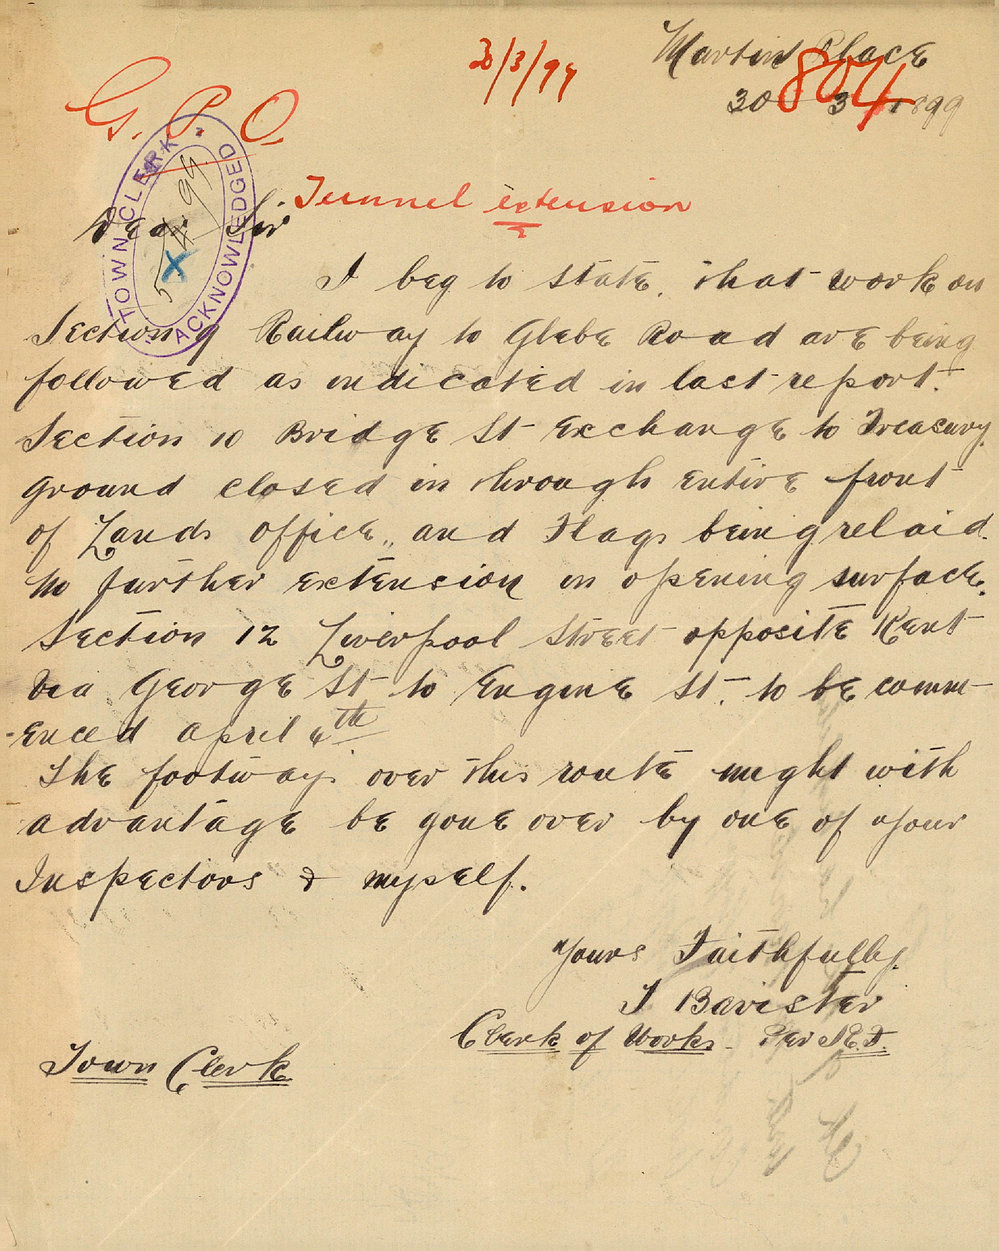 3/3/99
Martin Place
804
30 3 1899
G. P. O.
TOWN CLERK.
ACKNOWLEDGED
5/4/99
Tunnel extension
Dear Sir
I beg to state, that work on
Section 9 Railway to Glebe Road are being
followed as indicated in last report.
Section 10 Bridge St Exchange to Treasury.
Ground closed in through entire front
of Lands office, and Flags being relaid.
No further extension in opening surface.
Section 12 Liverpool Street opposite Kent
via George St to Engine St. to be comm-
-enced April 4th
The footways over this route might with
advantage be gone over by one of your
Inspectors & myself.
Yours Faithfully.
J Bavister
Clerk of Works. Per
Town Clerk